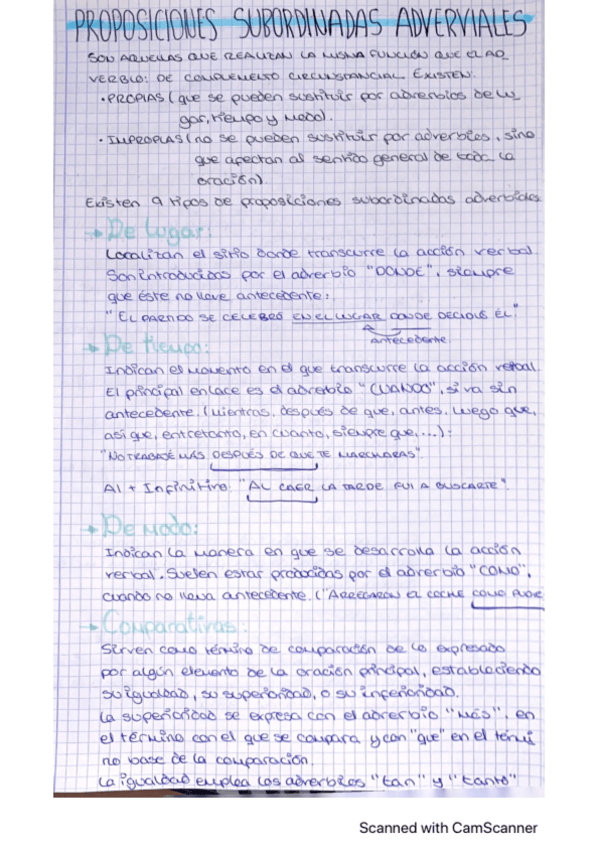 PROPOSICIONES SUBORDINADAS ADVERVIALES
SON AQUELLAS QUE REALIZAN LA MISMA FUNCIÓN QUE EL AD
VERBIO: DE COMPLEMENTO CIRCUNSTANCIAL. EXISTEN:
· PROPIAS (que se pueden sustituir por adverbios de lu
gar, tiempo y modo).
· IMPROPIAS (no se pueden sustituir por adverbios, sino
que afectan al sentido general de toda la
oración).
Existen 9 tipos de proposiciones subordinadas adverbiales
→ De lugar:
Localizan el sitio donde transcurre la acción verbal.
Son introducidas por el adverbio "DONDE", siempre
que éste no lleve antecedente:
"EL PARTIDO SE CELEBRÓ EN EL LUGAR DONDE DECIDIÓ ÉL"
antecedente
→ De tiempo:
Indican el momento en el que transcurre la acción verbal.
El principal enlace es el adverbio "CUANDO", si va sin
antecedente. (Mientras, después de que, antes, luego que,
así que, entretanto, en cuanto, siempre que, ...):
"NO TRABAJÉ MÁS DESPUÉS DE QUE TE MARCHARAS".
Al + Infinitivo: "AL CAER LA TARDE FUI A BUSCARTE".
→ De modo:
Indican la manera en que se desarrolla la acción
verbal. Suelen estar producidas por el adverbio "COMO",
cuando no lleva antecedente. ("ARREGLARON EL COCHE COMO PUDIE
→ Comparativas:
Sirven como término de comparación de lo expresado
por algún elemento de la oración principal, estableciendo
su igualdad, su superioridad, o su inferioridad.
La superioridad se expresa con el adverbio "MÁS", en
el término con el que se compara y con "que" en el térmi
no base de la comparación.
La igualdad emplea los adverbios "tan" y "tanto"
Scanned with CamScanner